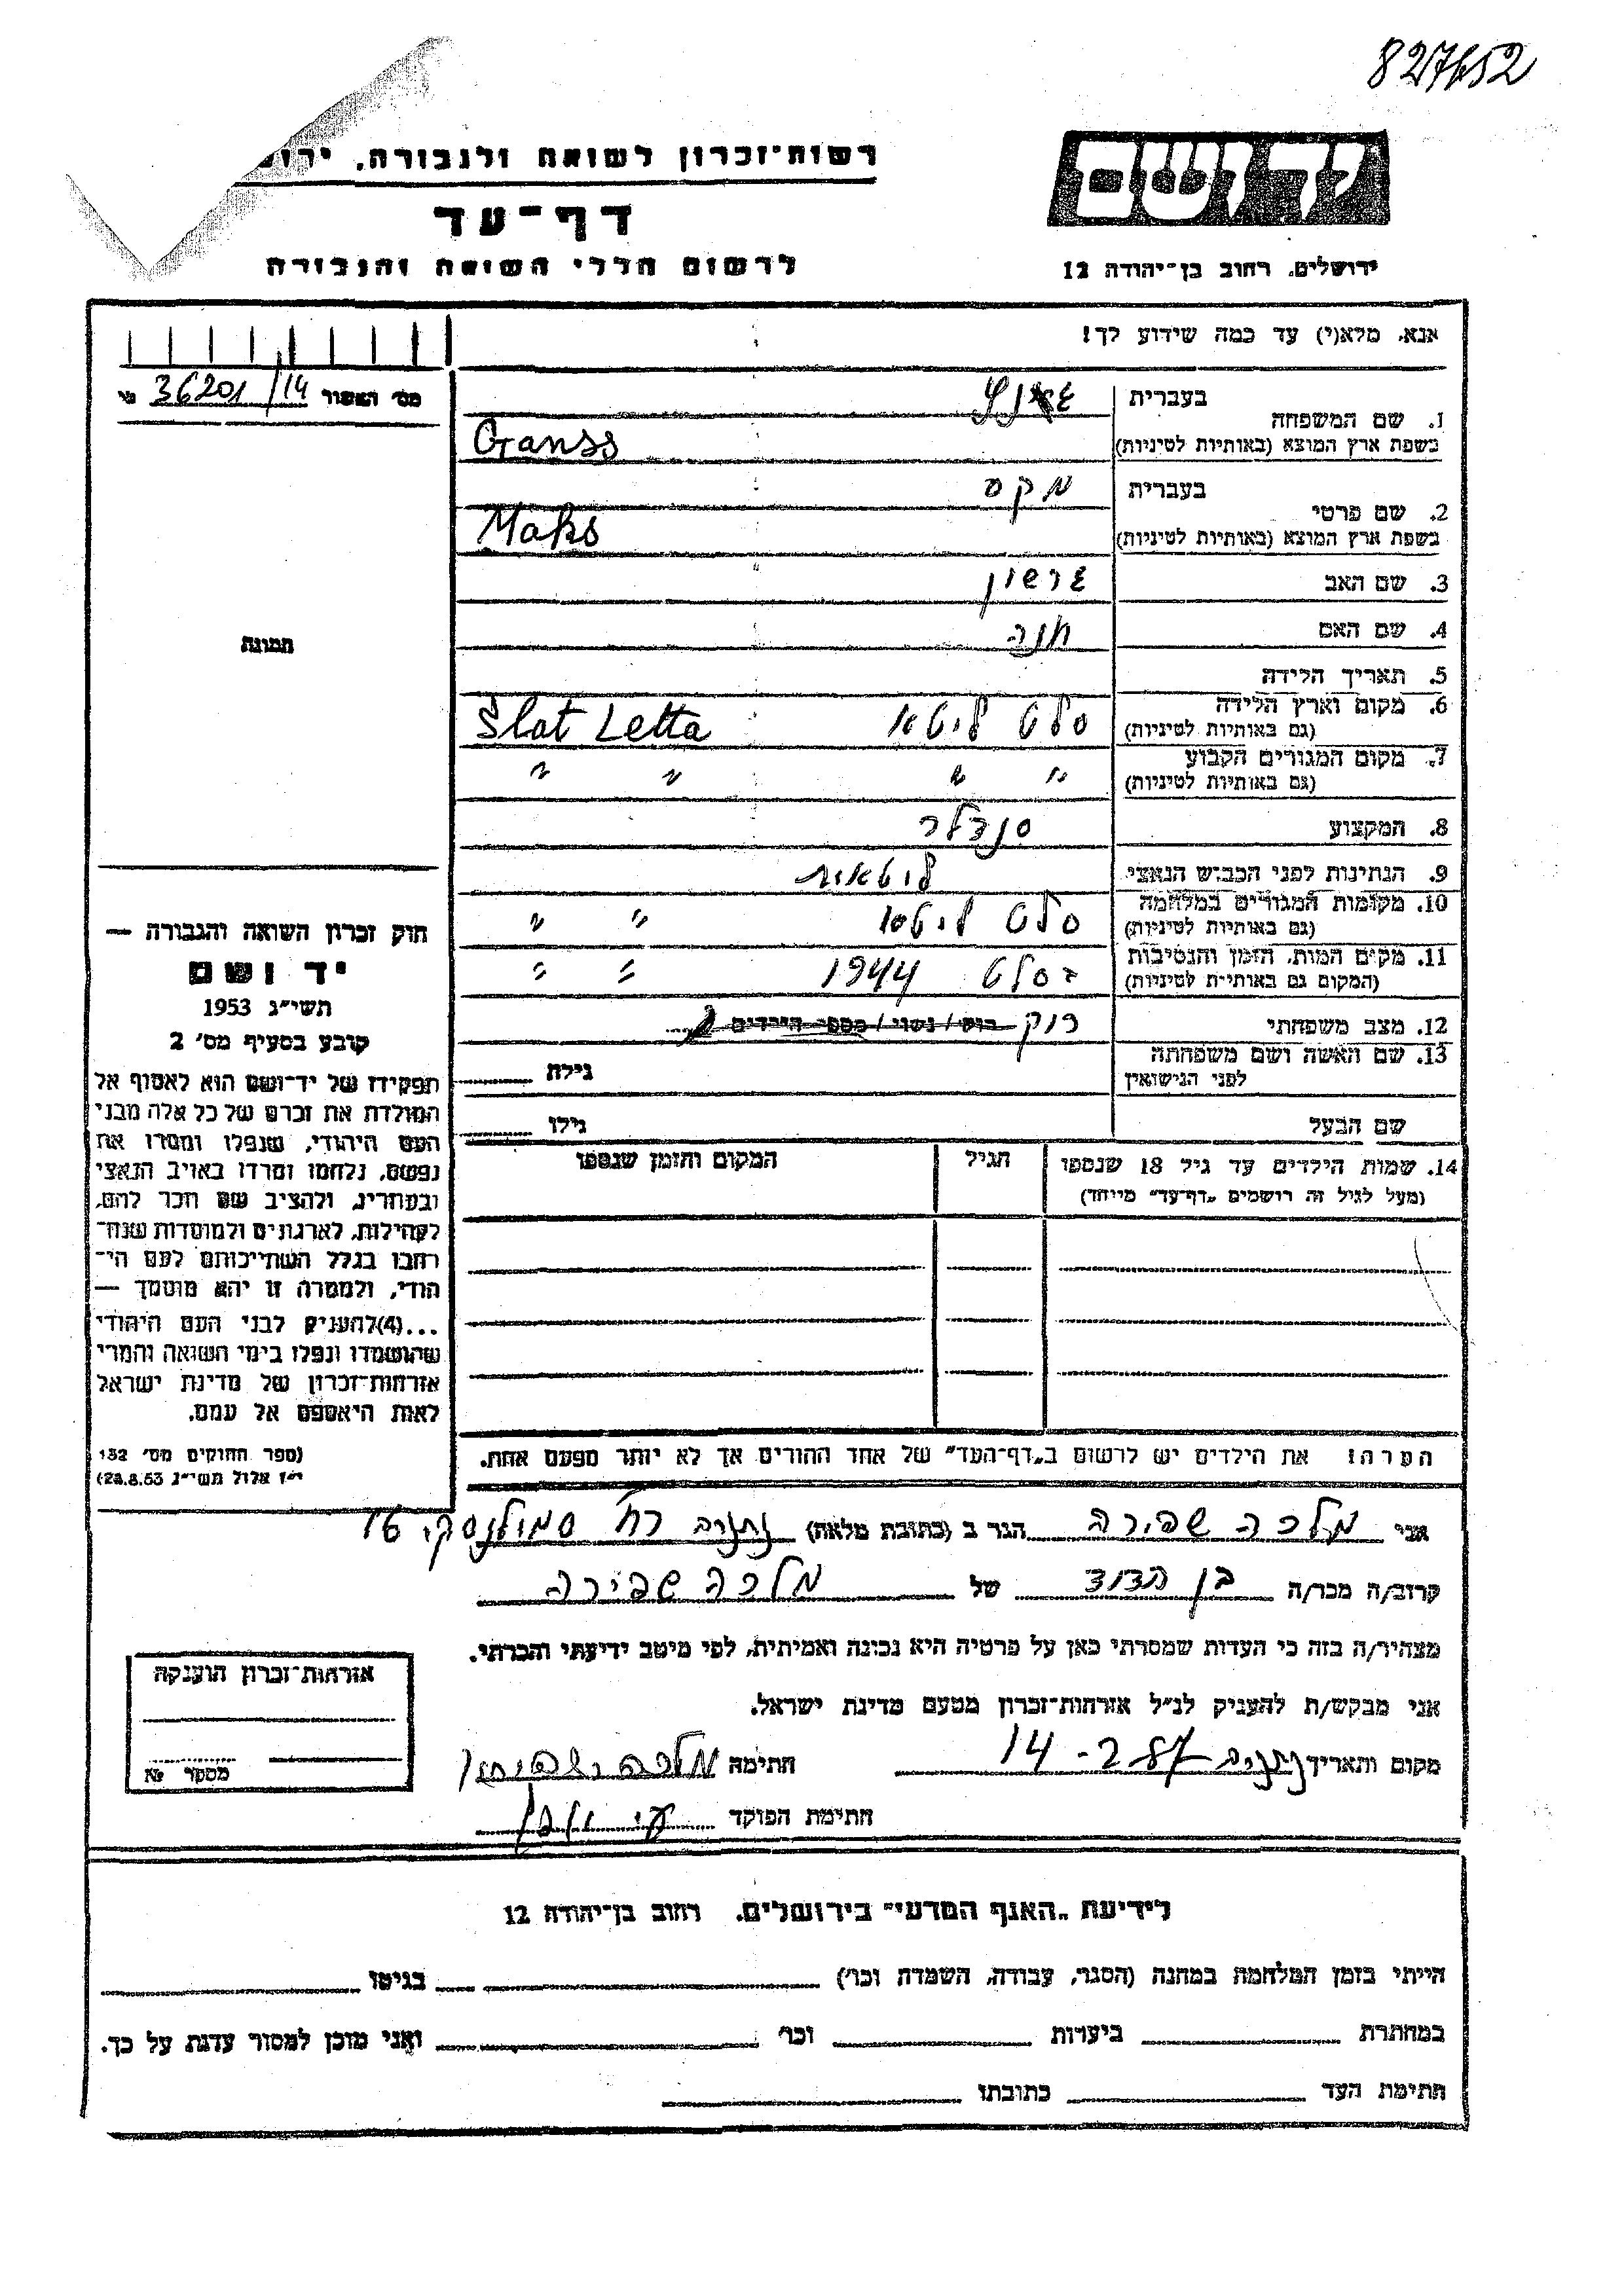 827652
יד ושם
רשות־זכרון לשואה ולגבורה,
דף־עד
לרשום חללי השואה והגבורה
ירושלים, רחוב בן־יהודה 12
אנא, מלא(י) עד כמה שידוע לך!
מס׳ האשור 36201/14
1. שם המשפחה
בעברית
בשפת ארץ המוצא (באותיות לטיניות) Ganss
2. שם פרטי
בעברית מקס
בשפת ארץ המוצא (באותיות לטיניות) Maks
3. שם האב גרשון
4. שם האם חנה
5. תאריך הלידה
6. מקום וארץ הלידה סלט ליטא Slat Letta
(גם באותיות לטיניות)
7. מקום המגורים הקבוע " " " "
(גם באותיות לטיניות)
8. המקצוע סנדלר
9. הנתינות לפני הכבוש הנאצי ליטאית
10. מקומות המגורים במלחמה סלט ליטא " "
(גם באותיות לטיניות)
11. מקום המות, הזמן והנסיבות בסלט 1944 " "
(המקום גם באותיות לטיניות)
12. מצב משפחתי רוק רוק / נשוי / מספר הילדים
13. שם האשה ושם משפחתה גילה
לפני הנישואין
שם הבעל גילו
14. שמות הילדים עד גיל 18 שנספו הגיל המקום והזמן שנספו
(מעל לגיל זה רושמים „דף־עד" מיוחד)
הערה: את הילדים יש לרשום ב„דף־העד" של אחד ההורים אך לא יותר מפעם אחת.
תמונה
חוק זכרון השואה והגבורה —
יד ושם
תשי״ג 1953
קובע בסעיף מס׳ 2
תפקידו של יד־ושם הוא לאסוף אל
המולדת את זכרם של כל אלה מבני
העם היהודי, שנפלו ומסרו את
נפשם, נלחמו ומרדו באויב הנאצי
ובעוזריו, ולהציב שם וזכר להם,
לקהילות, לארגונים ולמוסדות שנח־
רבו בגלל השתייכותם לעם הי־
הודי, ולמטרה זו יהא מוסמך —
...(4)להעניק לבני העם היהודי
שהושמדו ונפלו בימי השואה והמרי
אזרחות־זכרון של מדינת ישראל
לאות היאספם אל עמם.
(ספר החוקים מס׳ 132
י״ז אלול תשי״ג 28.8.53)
אני מלכה שפירה הגר ב (כתובת מלאה) נתניה רח׳ סמולנסקי 16
קרוב/ה מכר/ה בן הדוד של מלכה שפירה
מצהיר/ה בזה כי העדות שמסרתי כאן על פרטיה היא נכונה ואמיתית, לפי מיטב ידיעתי והכרתי.
אני מבקש/ת להעניק לנ״ל אזרחות־זכרון מטעם מדינת ישראל.
מקום ותאריך נתניה 14-2-87 חתימה מלכה שפירה
חתימת הפוקד
אזרחות־זכרון הוענקה
מספר №
לידיעת „האגף המדעי" בירושלים, רחוב בן־יהודה 12
הייתי בזמן המלחמה במחנה (הסגר, עבודה, השמדה וכו׳) בגיטו
במחתרת ביערות וכו׳ ואני מוכן למסור עדות על כך.
חתימת העד כתובתו